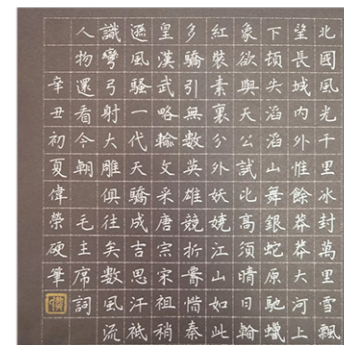 北國風光千里冰封萬里雪飄
望長城內外惟餘莽莽大河上
下頓失滔滔山舞銀蛇原馳蠟
象欲與天公試比高須晴日
紅裝素裹分外妖嬈江山如此
多驕引無數英雄競折惜秦
皇漢武略輸文采唐宗宋祖稍
遜風騷一代天驕成吉思汗祇
識彎弓射大雕俱往矣數風流
人物還看今朝 毛主席詞
辛丑初夏偉榮硬筆